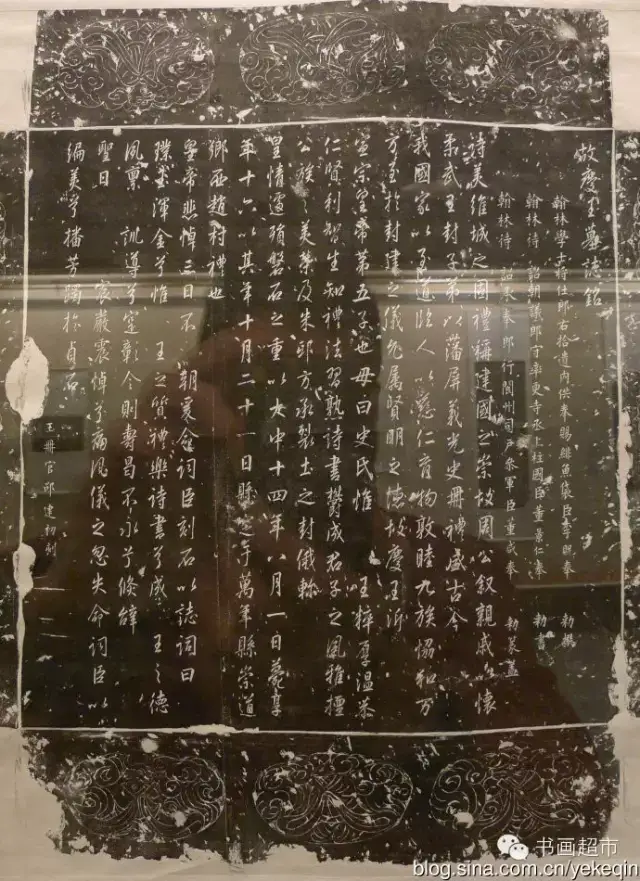 故慶王墓誌銘
翰林學士將仕郎右拾遺內供奉賜緋魚袋臣李貺奉 勅撰
翰林待 詔朝議郎守率更寺丞上柱國臣董景仁奉 勅書
翰林待 詔承奉郎行閬州司戶參軍臣董咸奉 勅篆蓋
詩美維城之固禮稱建國之崇故周公叙親戚 懷
柔武王封子弟以藩屏義光史冊禮盛古今
我國家以孝道法人以慈仁育物敦睦九族協和万
方至於封建之儀允屬賢明之德故慶王沂
宣宗皇帝第五子也母曰史氏惟 王粹厚温恭
仁賢利智生知禮法習熟詩書贊成君子之風雅擅
公族之美榮及朱邸方承裂土之封俄軫
皇情遽殞磐石之重以大中十四年八月一日薨享
年十六以其年十月二十一日歸窆于萬年縣崇道
鄉西趙村禮也
皇帝悲悼三日不 朝爰命詞臣刻石以誌詞曰
璞玉渾金兮惟 王之質禮樂詩書兮成 王之德
風禀 訓導兮寔彰今則壽昌不永兮倏辞
聖日 宸嚴震悼兮痛風儀之忽失命詞臣以
編美兮播芳躅於貞石
玉冊官邵建初刻
书画超市
blog.sina.com.cn/yekeqin